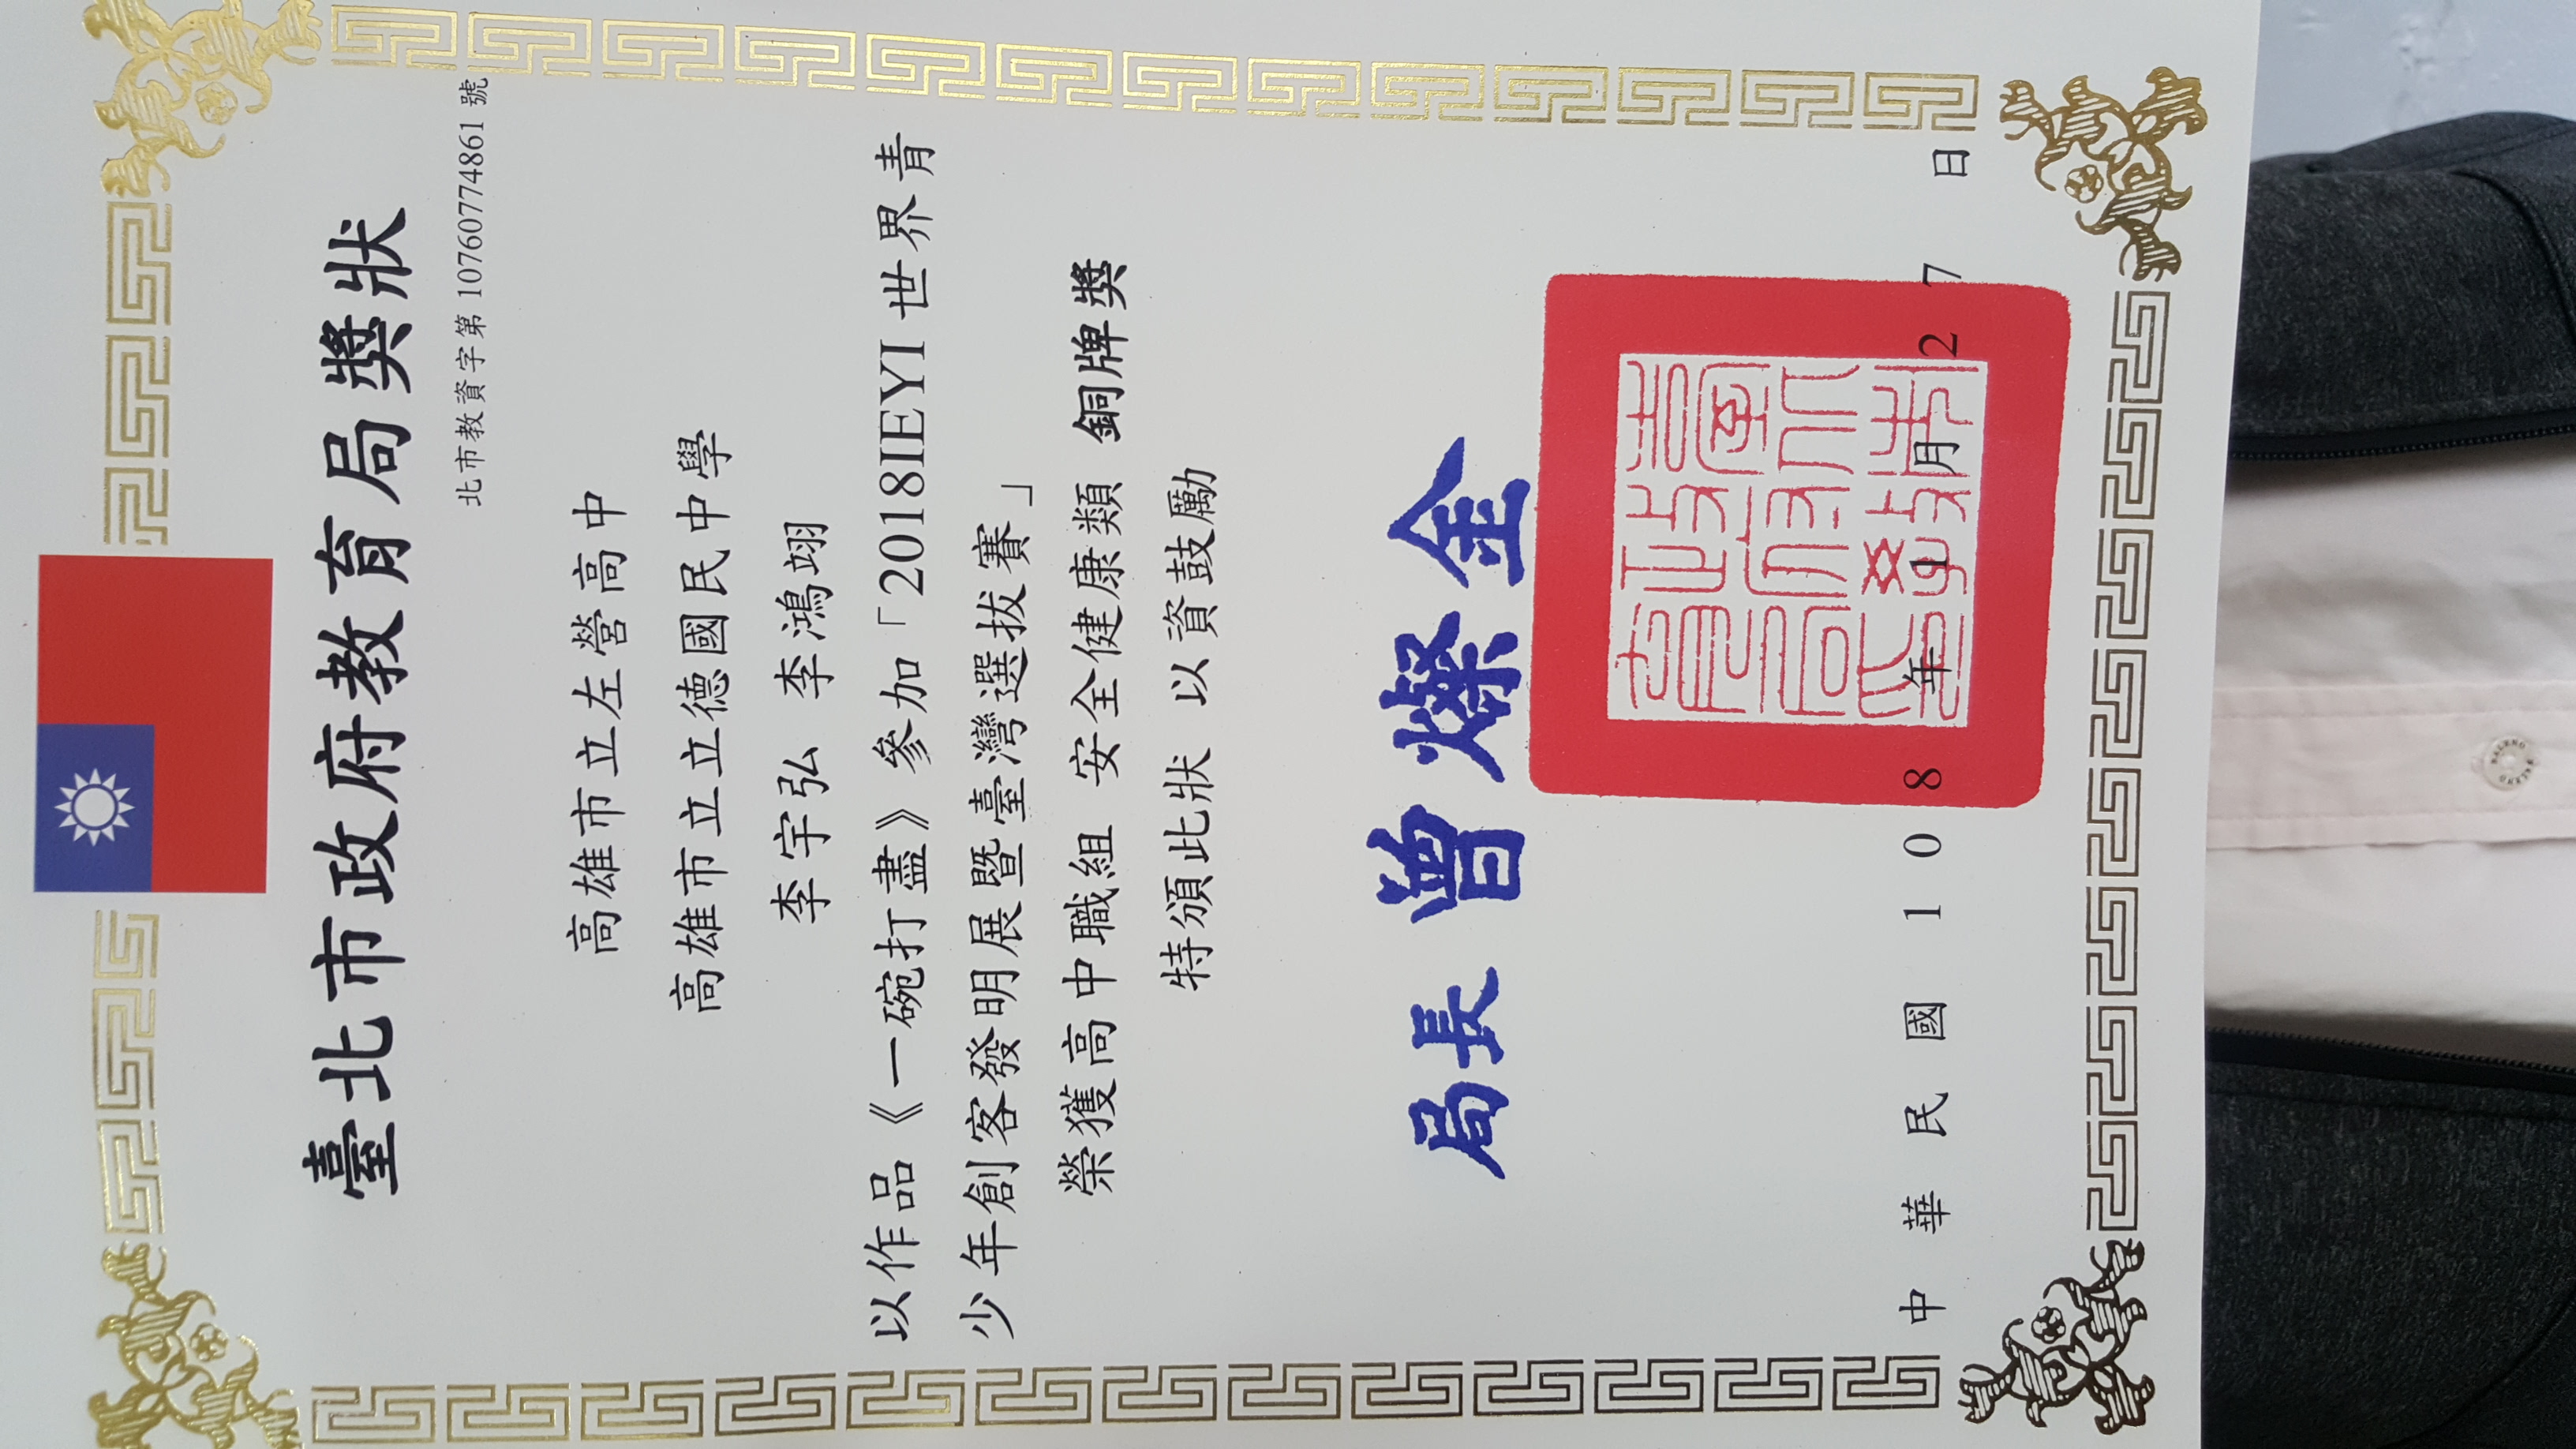 臺北市政府教育局獎狀
北市教資字第 10760774861 號
高雄市立左營高中
高雄市立立德國民中學
李宇弘 李鴻翊
以作品《一碗打盡》參加「2018IEYI 世界青
少年創客發明展暨臺灣選拔賽」
榮獲高中職組 安全健康類 銅牌獎
特頒此狀 以資鼓勵
局長 曾燦金
中華民國108年1月27日